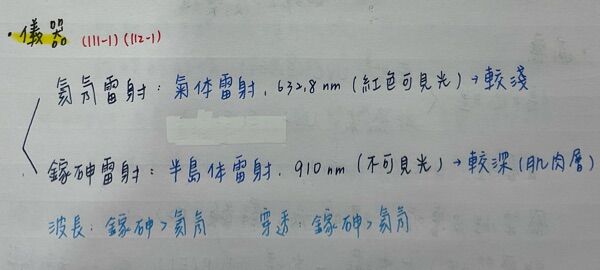 ・儀器 (111-1) (112-1)
氦氖雷射：氣体雷射，632.8nm (紅色可見光) → 較淺
鎵砷雷射：半島体雷射，910nm (不可見光) → 較深 (肌肉層)
波長：鎵砷 > 氦氖　穿透：鎵砷 > 氦氖